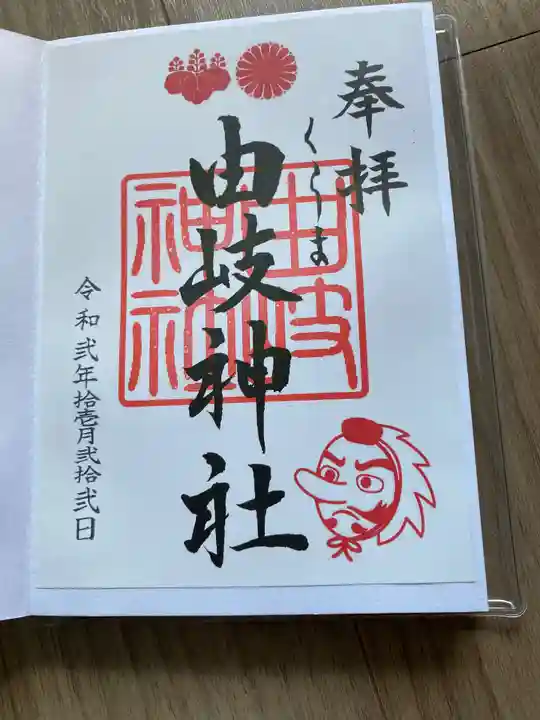 奉拝
くらま
由岐神社
由岐神社
令和弐年拾壱月弐拾弐日